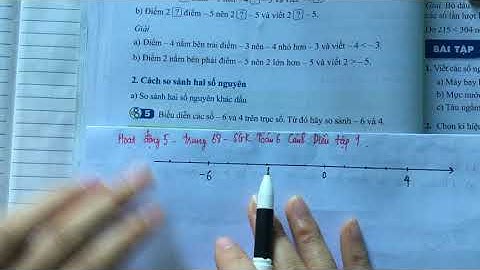 b) Điểm 2 ? điểm – 5 nên 2 ? – 5 và viết 2 ? – 5.
Giải
a) Điểm – 4 nằm bên trái điểm – 3 nên – 4 nhỏ hơn – 3 và viết – 4 < – 3.
b) Điểm 2 nằm bên phải điểm – 5 nên 2 lớn hơn – 5 và viết 2 > – 5.
2. Cách so sánh hai số nguyên
a) So sánh hai số nguyên khác dấu
5 Biểu diễn các số – 6 và 4 trên trục số. Từ đó hãy so sánh – 6 và 4.
Hoạt động 5 - trang 67 - SGK Toán 6 Cánh Diều tập 1.
-6 0 4
các số lần lượt
Do 215 < 304 n
BÀI TẬP
1. Viết các số ng
a) Máy bay
b) Mực nước
c) Tàu ngầm
2. Chọn kí hiệu